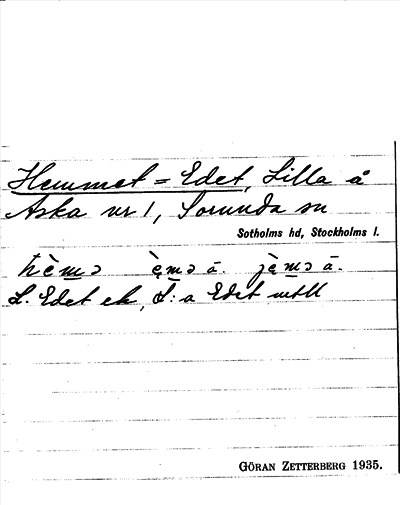 Hemmet = Edet, Lilla å
Aska nr 1, Sorunda sn
Sotholms hd, Stockholms l.
hèmə èmə ā. jèmə ā.
L. Edet ek, L:a Edet mtll
GÖRAN ZETTERBERG 1935.